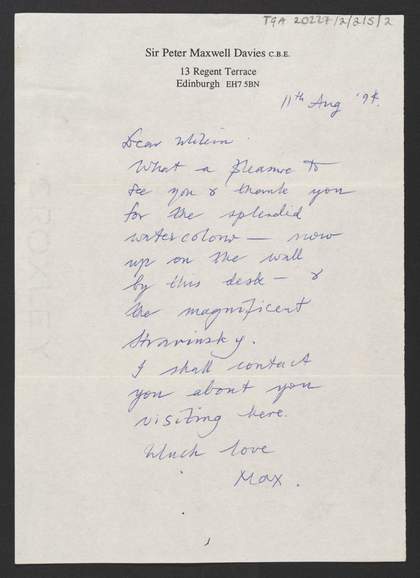 TGA 20227/2/2/5/2
Sir Peter Maxwell Davies C.B.E.
13 Regent Terrace
Edinburgh EH7 5BN
11th Aug '94.
Dear
What a pleasure to
see you & thank you
for the splendid
watercolour — now
up on the wall
by this desk — &
the magnificent
Stravinsky.
I shall contact
you about you
visiting here.
Much love
Max.